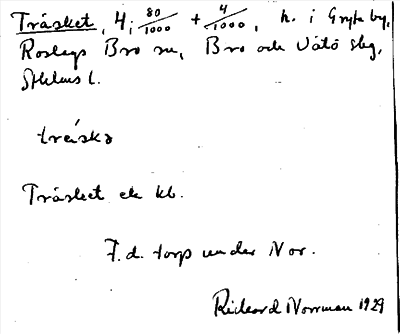 Träsket, 4; 80/1000 + 4/1000, h. i Gryta by,
Roslags Bro sn, Bro och Vätö slg,
Sthlms l.
träskə
Träsket ek kb.
F.d. torp under Nor.
Rickard Norrman 1929